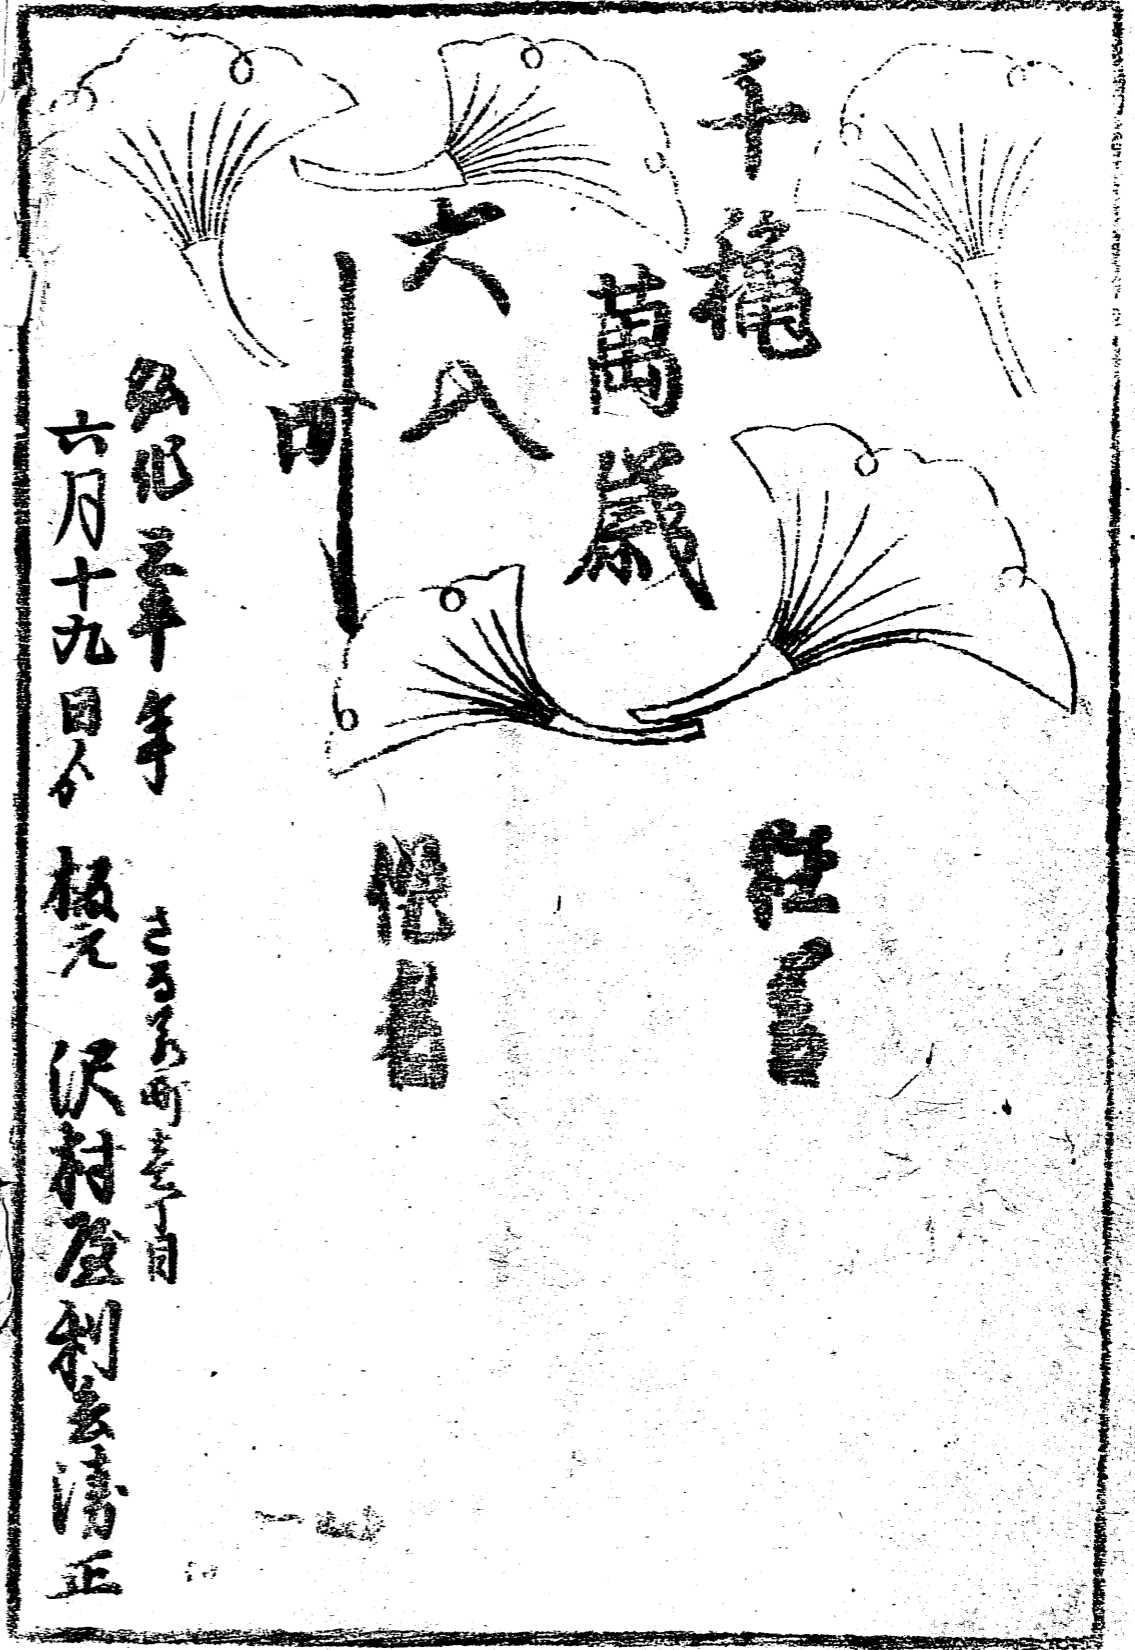 千穐
萬歳
大入
叶
弘化三午年
六月十九日より
さるわか町壱丁目
板元 沢村屋利兵衛正